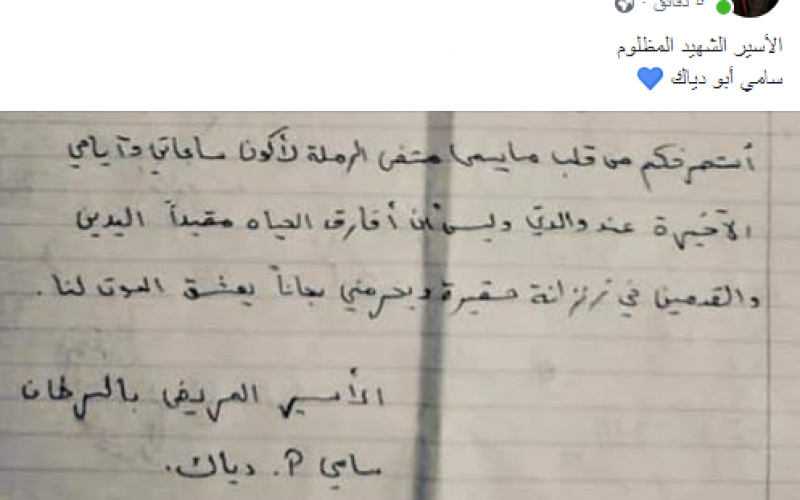 5 دقائق ·
الأسير الشهيد المظلوم
سامي أبو دياك 💙
أستصرخكم من قلب ما يسمى مشفى الرملة لأكون ساعاتي وآيامي
الآخيرة عند والدتي وليس أن أفارق الحياه مقيداً اليدين
والقدمين في زنزانة حقيرة وبحرمني بجاناً يعشق الموت لنا.
الأسير المريض بالسرطان
سامي P. دياك.